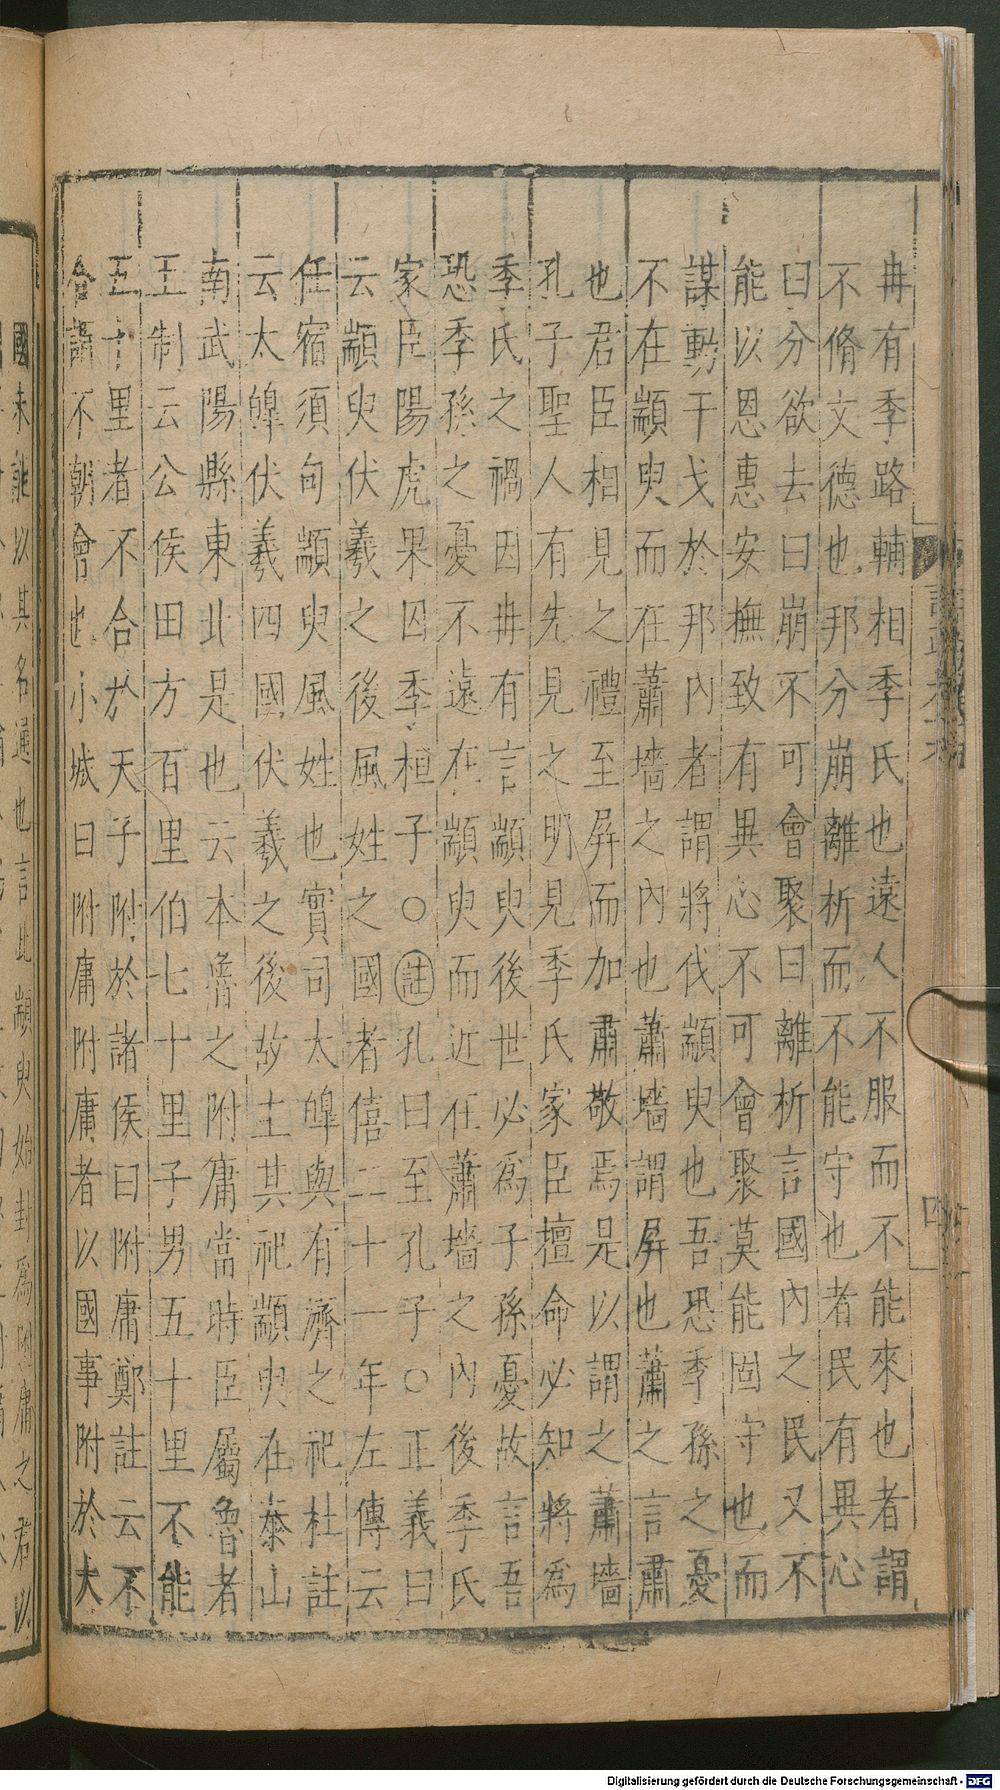 冉有季路輔相季氏也遠人不服而不能來也者謂
不脩文德也邦分崩離析而不能守也者民有異心
曰分欲去曰崩不可會聚曰離析言國內之民又不
能以恩惠安撫致有異心不可會聚莫能固守也而
謀動干戈於邦內者謂將伐顓臾也吾恐季孫之憂
不在顓臾而在蕭墻之內也蕭墻謂屏也蕭之言肅
也君臣相見之禮至屏而加肅敬焉是以謂之蕭墻
孔子聖人有先見之明見季氏家臣擅命必知將為
季氏之禍因冉有言顓臾後世必為子孫憂故言吾
恐季孫之憂不遠在顓臾而近在蕭墻之內後季氏
家臣陽虎果囚季桓子○註孔曰至孔子○正義曰
云顓臾伏羲之後風姓之國者僖二十一年左傳云
任宿須句顓臾風姓也實司太皥與有濟之祀杜註
云太皥伏羲四國伏羲之後故主其祀顓臾在泰山
南武陽縣東北是也云本魯之附庸當時臣屬魯者
王制云公侯田方百里伯七十里子男五十里不能
五十里者不合於天子附於諸侯曰附庸鄭註云不
合謂不朝會也小城曰附庸附庸者以國事附於大
國未能以其名通也言此顓臾始封為附庸之君以
Digitalisierung gefördert durch die Deutsche Forschungsgemeinschaft - DFG